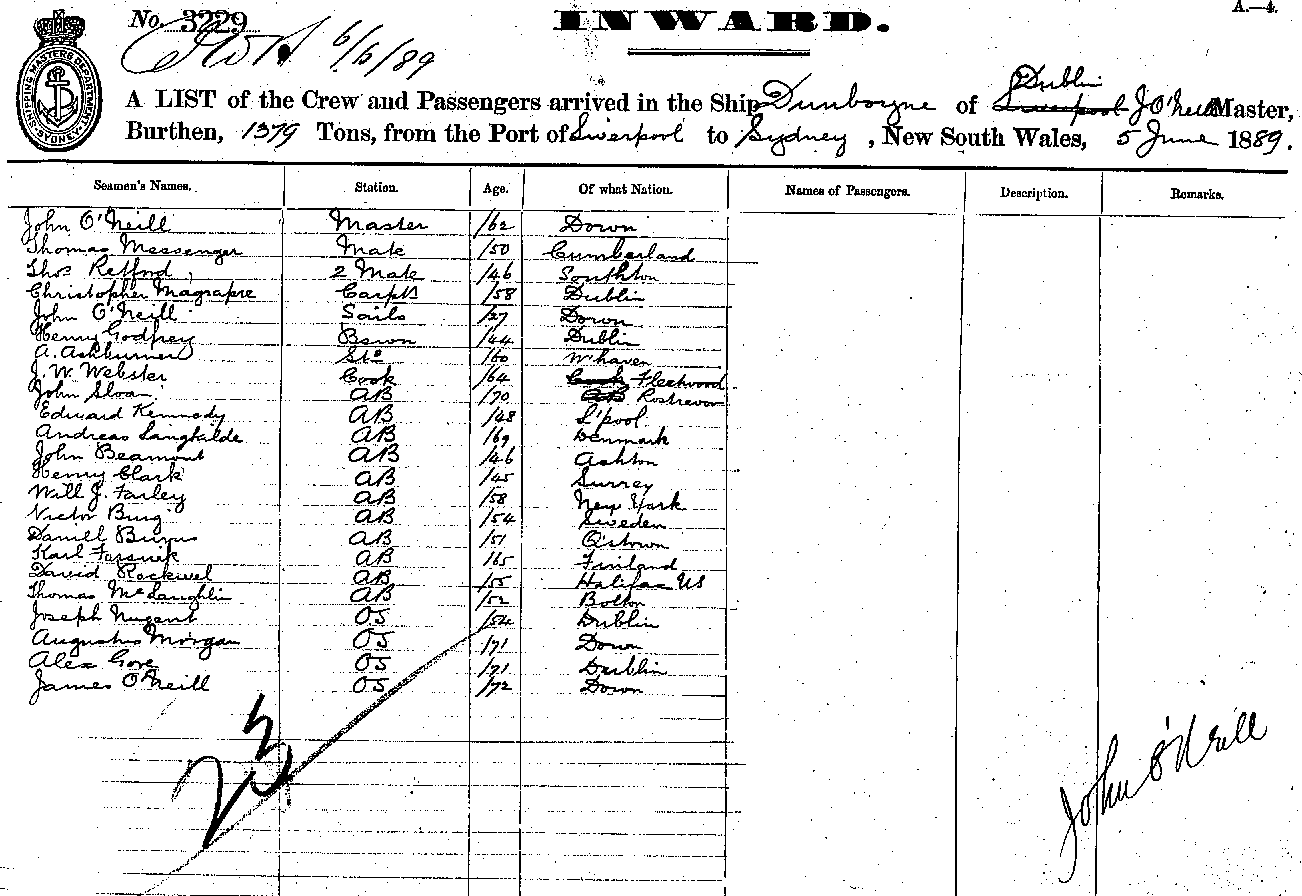 A.—4.
No. 3229
INWARD.
6/6/89
SHIPPING MASTERS DEPARTMENT SYDNEY
Dublin
A LIST of the Crew and Passengers arrived in the Ship Dunboyne of Liverpool J O'Neill Master,
Burthen, 1379 Tons, from the Port of Liverpool to Sydney, New South Wales, 5 June 1889.
Seamen's Names. Station. Age. Of what Nation. Names of Passengers. Description. Remarks.
John O'Neill Master /62 Down
Thomas Messenger Mate /50 Cumberland
Thos Retford 2 Mate /46 Southton
Christopher Magrapre Carptr /58 Dublin
John O'Neill Sails /27 Down
Henry Godfrey Boswn /44 Dublin
A. Ashburner Std /60 W'haven
J. W. Webster Cook /64 Cook Fleetwood
John Sloan AB /70 AB Rostrevor
Edward Kennedy AB /48 L'pool
Andreas Langkilde AB /69 Denmark
John Beamont AB /46 Ashton
Henry Clark AB /45 Surrey
Will J. Farley AB /58 New York
Victor Burg AB /54 Sweden
Daniel Burns AB /51 Q'stown
Karl AB /65 Finland
David Rockwel AB /55 Halifax US
Thomas McLaughlin AB /52 Bolton
Joseph Nugent OS /54 Dublin
Augustus Morgan OS /71 Down
Alex Gore OS /71 Dublin
James O'Neill OS /72 Down
23
John O'Neill